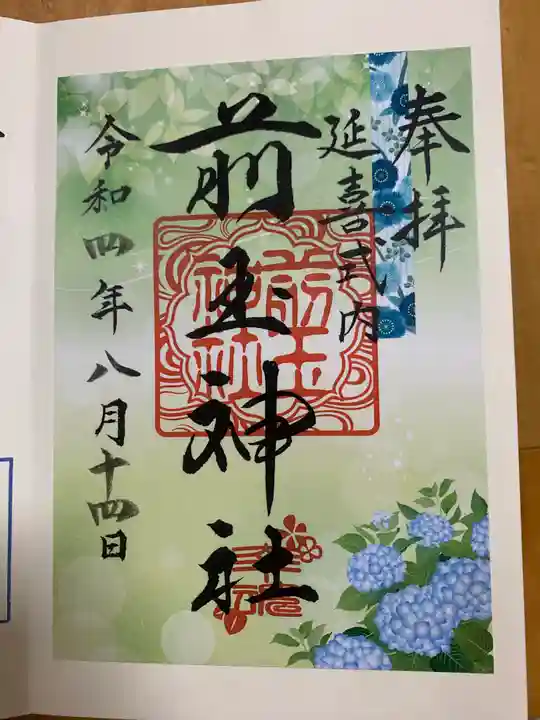 奉拝
延喜式内
前玉神社
令和四年八月十四日
前玉
神社